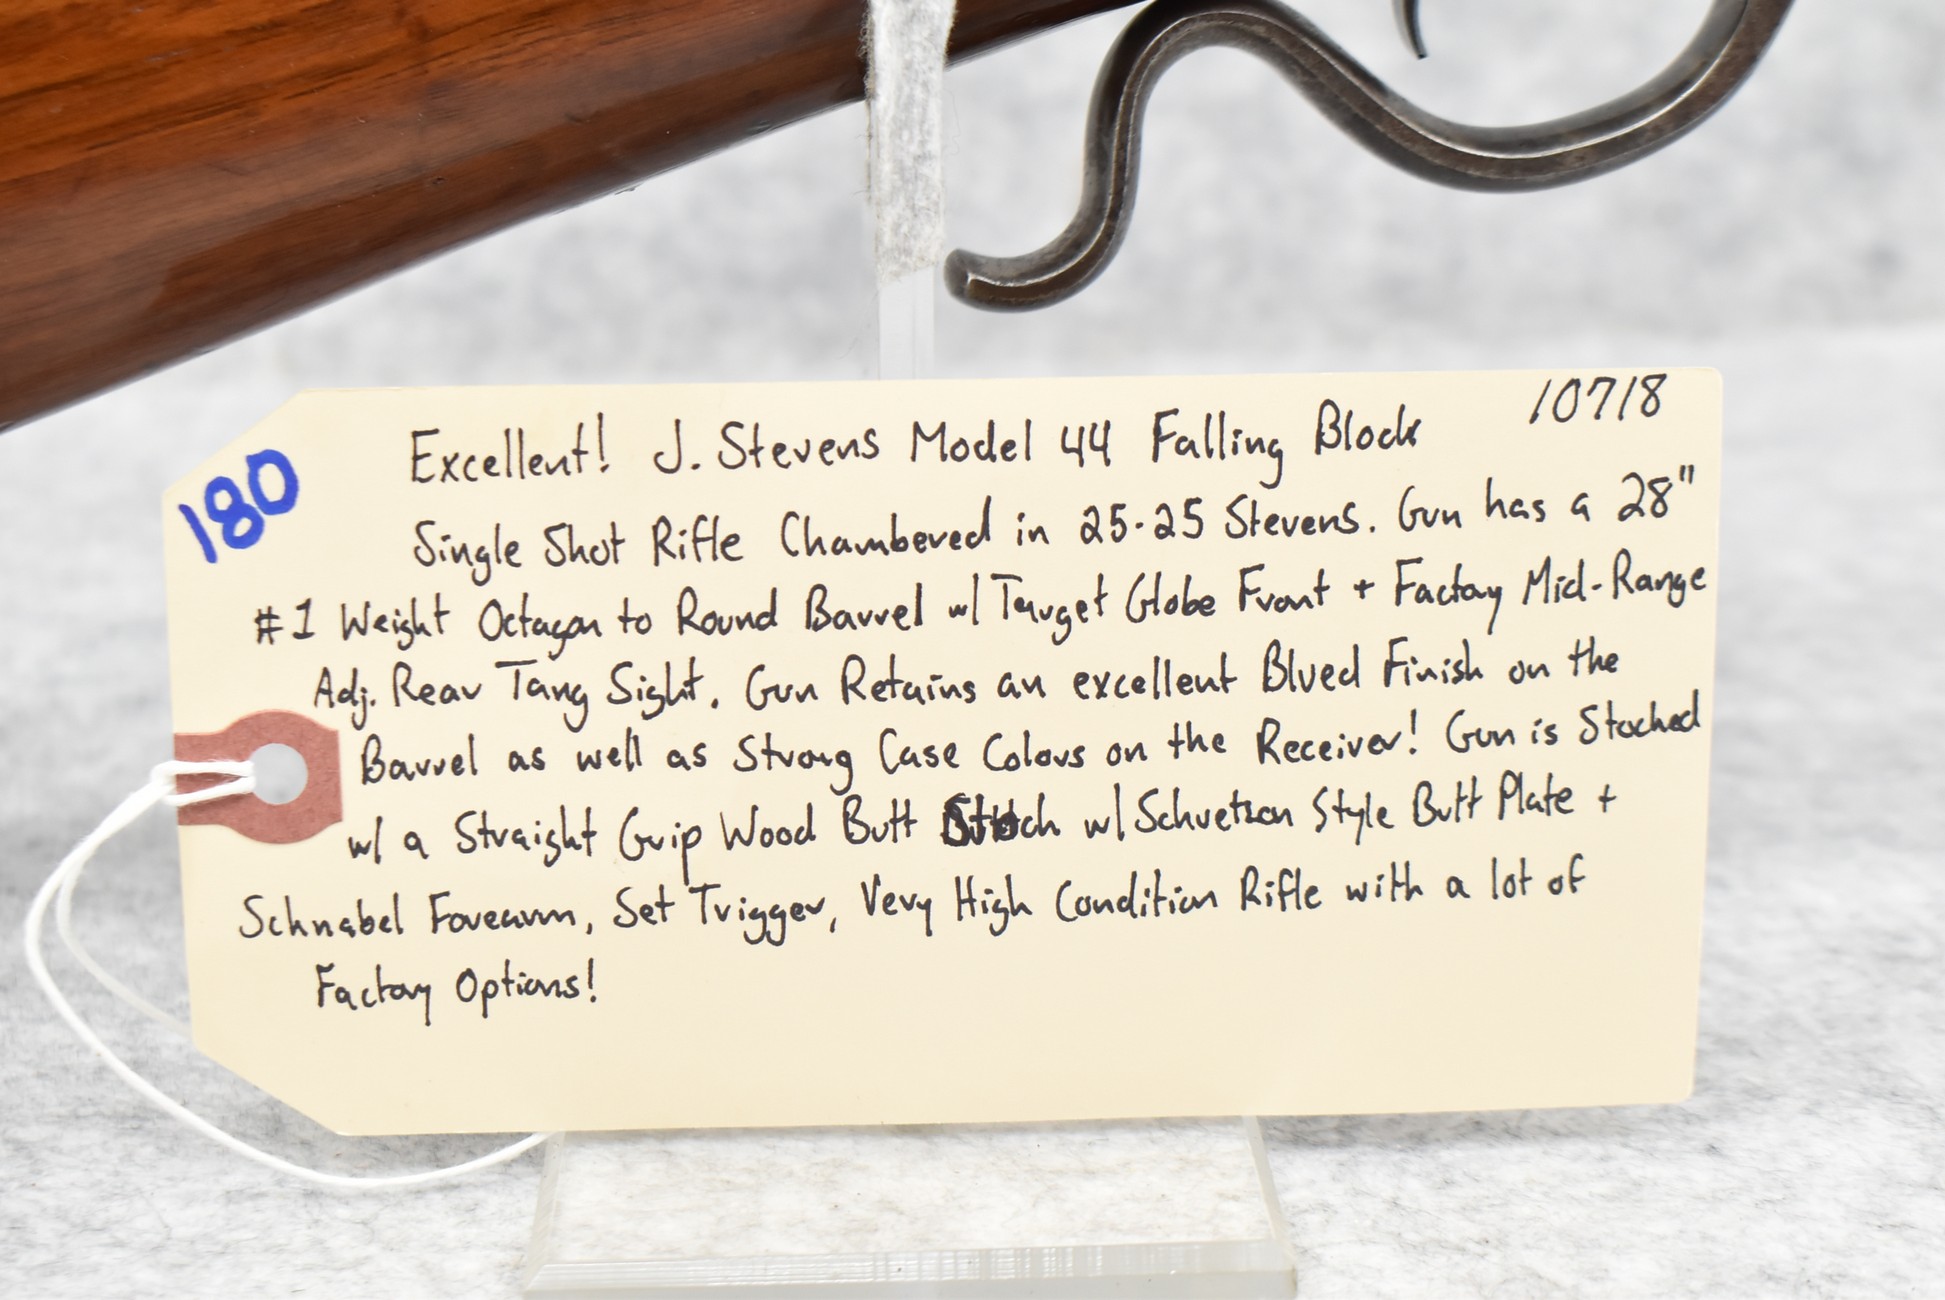 10718
180
Excellent! J. Stevens Model 44 Falling Block
Single Shot Rifle Chambered in 25-25 Stevens. Gun has a 28"
#1 Weight Octagon to Round Barrel w/ Target Globe Front + Factory Mid-Range
Adj. Rear Tang Sight. Gun Retains an excellent Blued Finish on the
Barrel as well as Strong Case Colors on the Receiver! Gun is Stocked
w/ a Straight Grip Wood Butt Stock w/ Schuetzen Style Butt Plate +
Schnabel Forearm, Set Trigger, Very High Condition Rifle with a lot of
Factory Options!